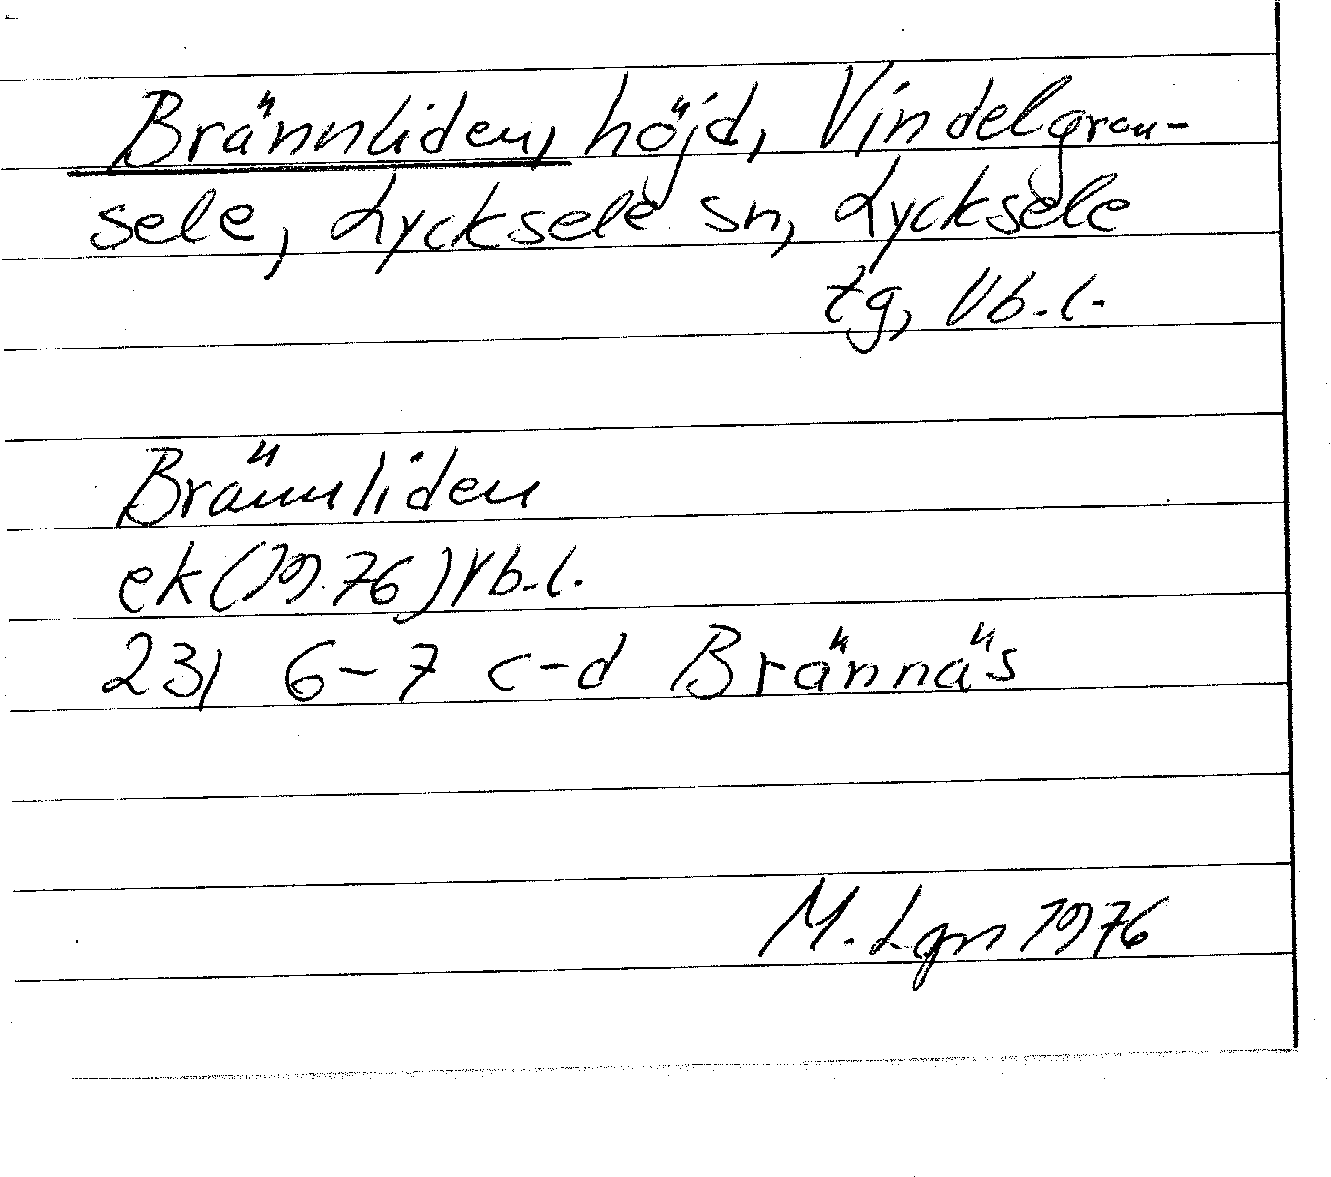 Brännliden, höjd, Vindelgran-
sele, Lycksele sn, Lycksele
tg, Vb.l.
Brännliden
ek(1976)Vb.l.
23J 6-7 c-d Brännäs
M. Lgm 1976